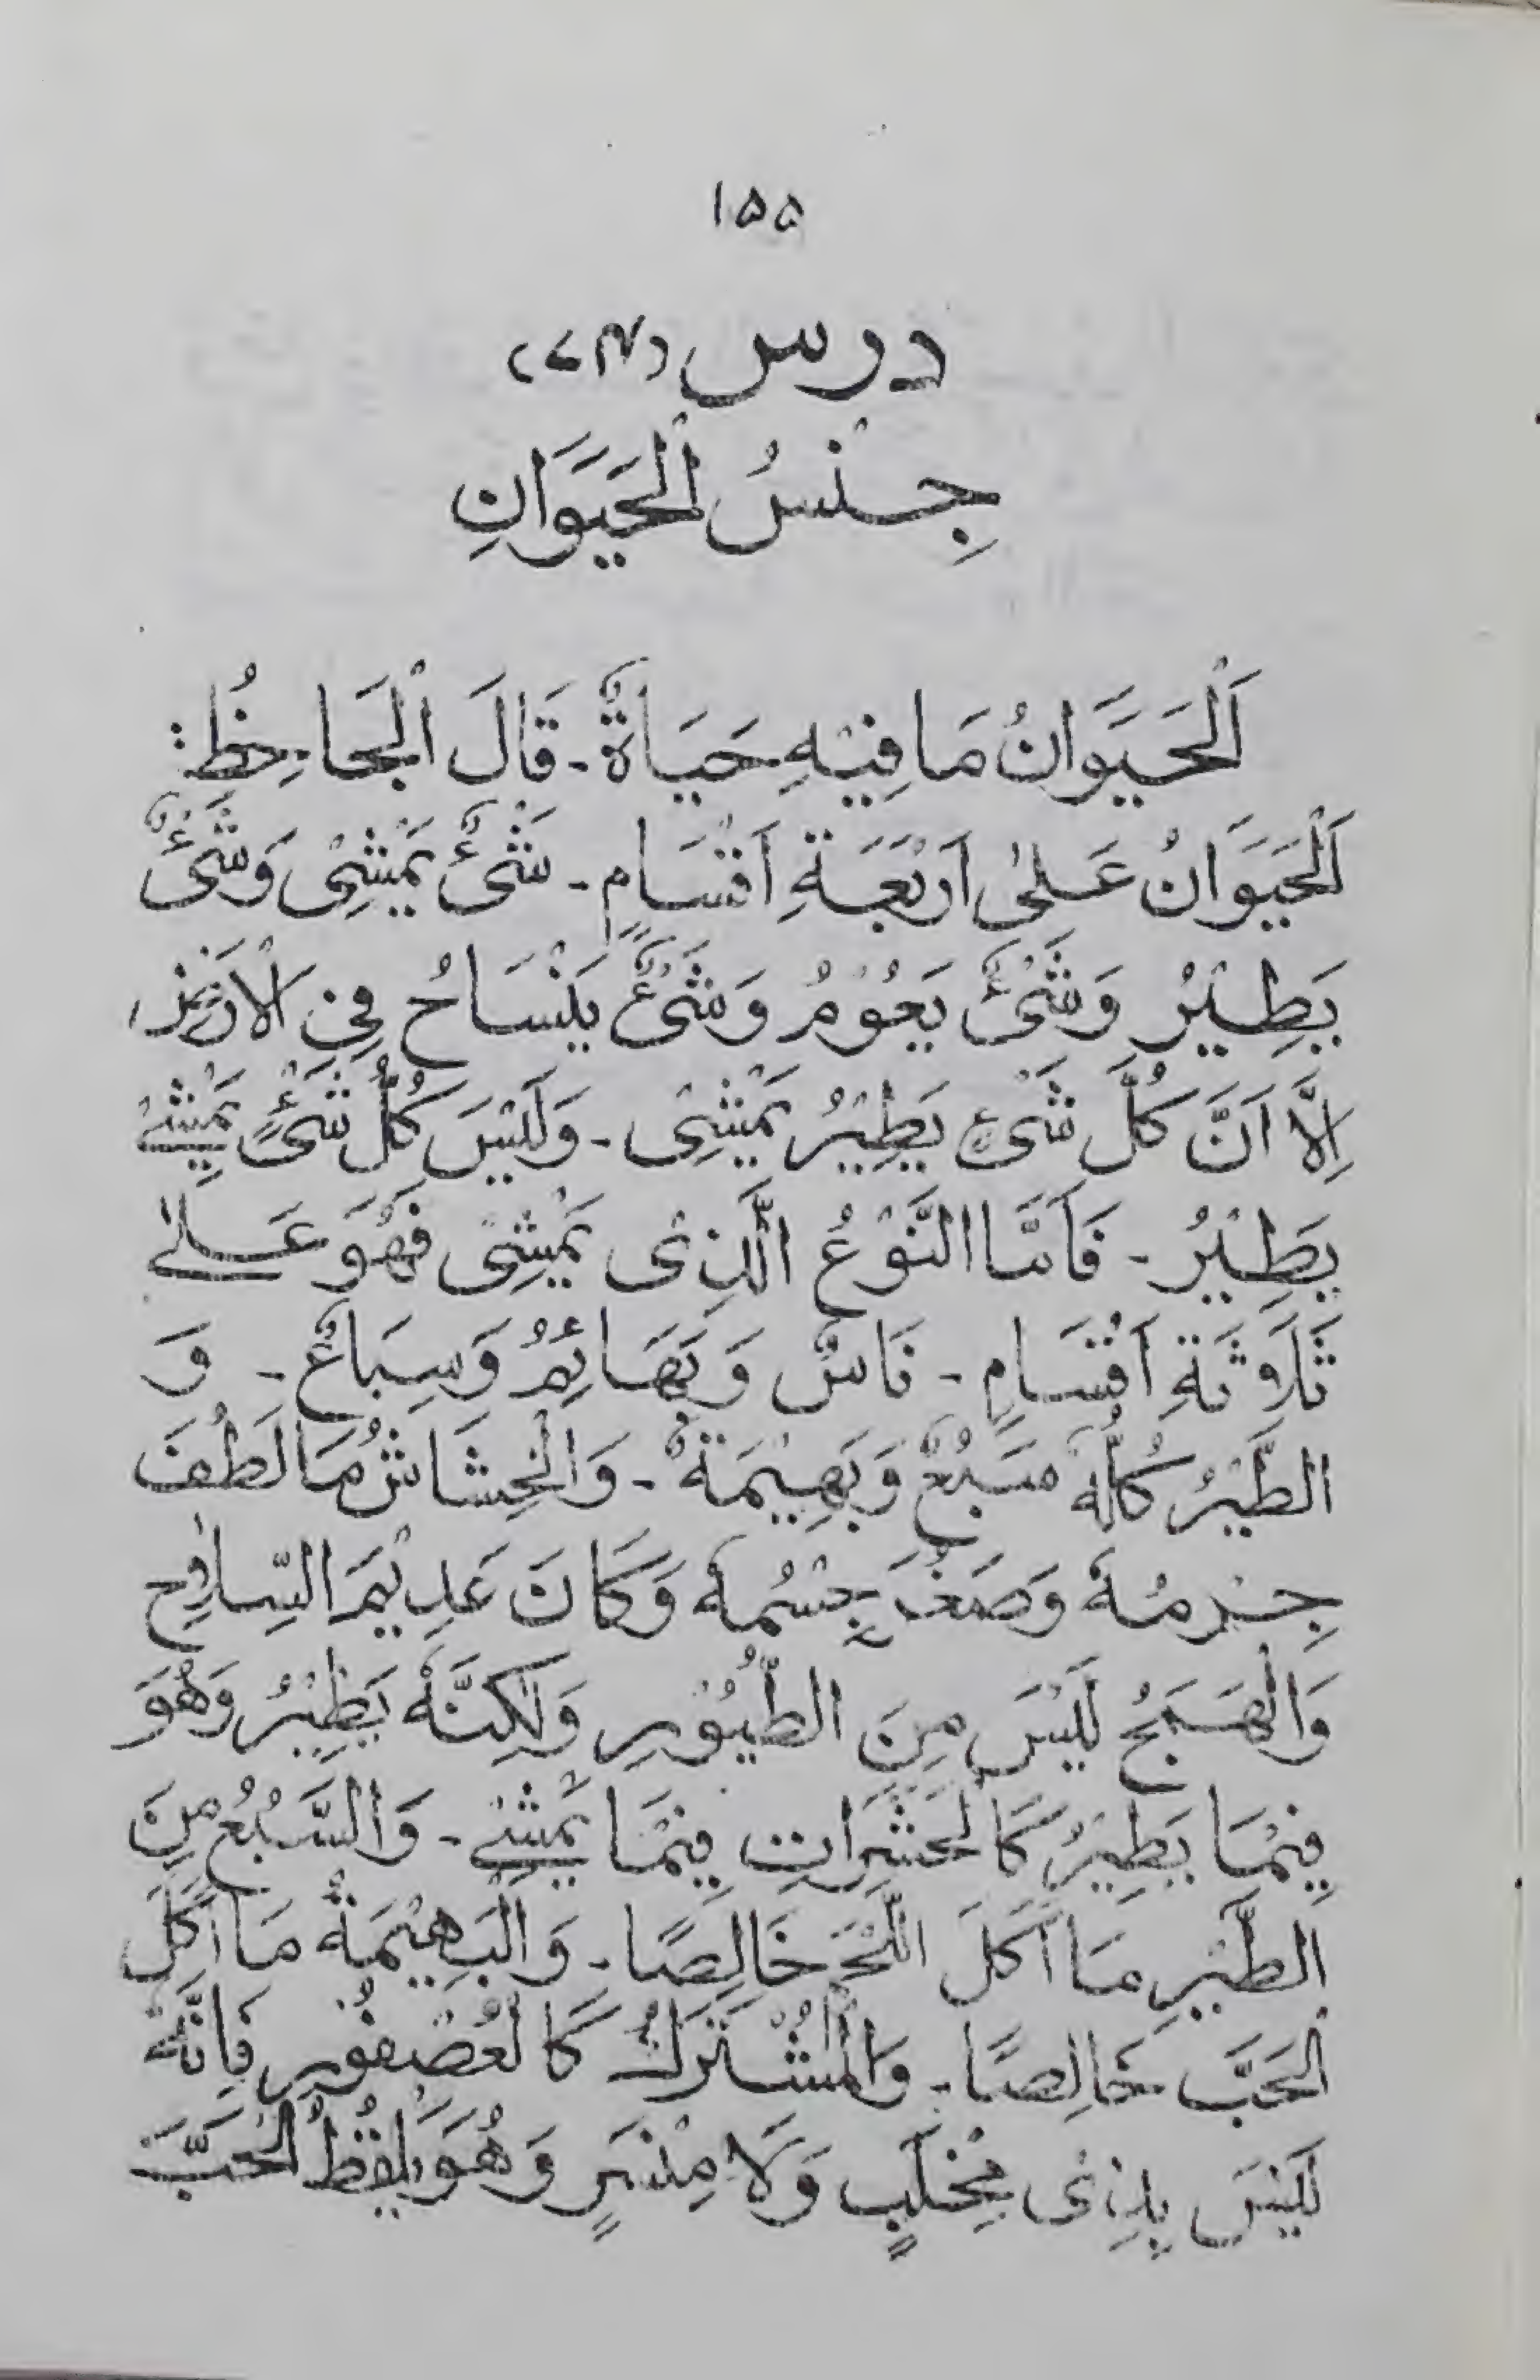 ۱۵۵
درس (۷۴)
جِنْسُ الْحَيَوَانِ
اَلْحَيَوَانُ مَا فِيْهِ حَيَاةٌ ۔ قَالَ الْجَاحِظُ :
اَلْحَيَوَانُ عَلىٰ اَرْبَعَةِ اَقْسَامٍ ۔ شَىْءٌ يَمْشِىْ وَشَىْءٌ
يَطِيْرُ وَشَىْءٌ يَعُوْمُ وَشَىْءٌ يَنْسَاحُ فِى الْاَرْضِ
اِلَّا اَنَّ كُلَّ شَىْءٍ يَطِيْرُ يَمْشِىْ ۔ وَلَيْسَ كُلُّ شَىْءٍ يَمْشِىْ
يَطِيْرُ ۔ فَاَمَّا النَّوْعُ الَّذِىْ يَمْشِىْ فَهُوَ عَلىٰ
ثَلَاثَةِ اَقْسَامٍ ۔ نَاسٌ وَ بَهَائِمُ وَسِبَاعٌ ۔ وَ
الطَّيْرُ كُلُّهٗ سَبُعٌ وَبَهِيْمَةٌ ۔ وَالْخِشَاشُ مَا لَطُفَ
جِرْمُهٗ وَصَغُرَ جِسْمُهٗ وَكَانَ عَدِيْمَ السِّلَاحِ
وَالْهَمَجُ لَيْسَ مِنَ الطُّيُوْرِ وَلٰكِنَّهٗ يَطِيْرُ وَهُوَ
فِيْمَا يَطِيْرُ كَالْحَشَرَاتِ فِيْمَا يَمْشِىْ ۔ وَالسَّبُعُ مِنَ
الطَّيْرِ مَا اَكَلَ اللَّحْمَ خَالِصًا ۔ وَالْبَهِيْمَةُ مَا اَكَلَ
الْحَبَّ خَالِصًا ۔ وَالْمُشْتَرَكُ كَالْعُصْفُوْرِ فَاِنَّهٗ
لَيْسَ بِذِىْ مِخْلَبٍ وَلَا مِنْسَرٍ وَهُوَ يَلْقُطُ الْحَبَّ